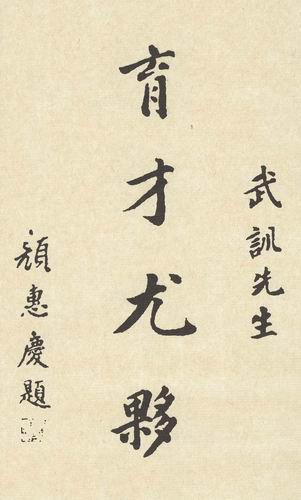 武訓先生
育才尤夥
顏惠慶題